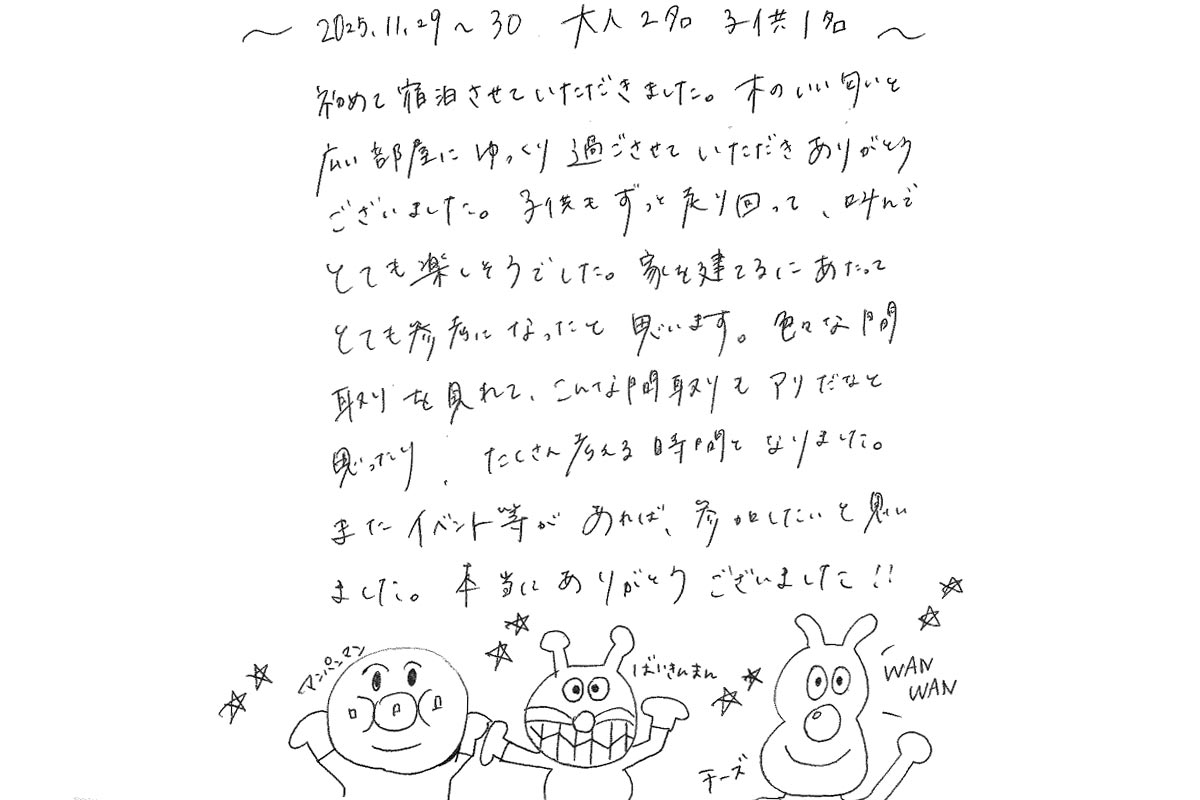 〜 2025.11.29〜30 大人2名 子供1名 〜
初めて宿泊させていただきました。木のいい匂いと
広い部屋にゆっくり過ごさせていただきありがとう
ございました。子供もずっと走り回って、叫んで
とても楽しそうでした。家を建てるにあたって
とても参考になったと思います。色々な間
取りを見れて、こんな間取りもアリだなと
思ったり、たくさん考える時間となりました。
またイベント等があれば、参加したいと思い
ました。本当にありがとうございました!!
マンパンマン
ばいきんまん
WAN
WAN
チーズ